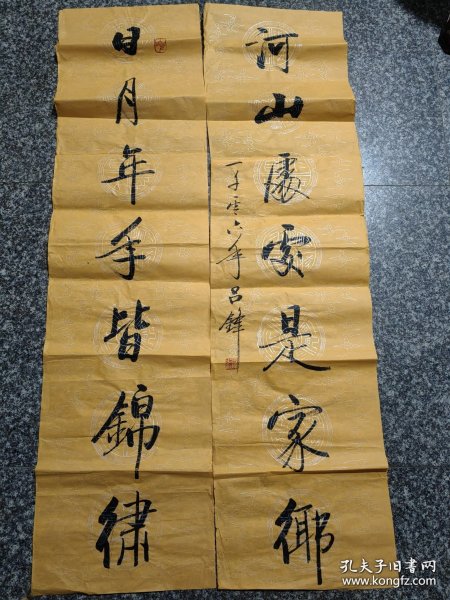 日月年年皆錦繡
河山處處是家鄉
二千零六年 呂鋒
孔夫子旧书网
www.kongfz.com